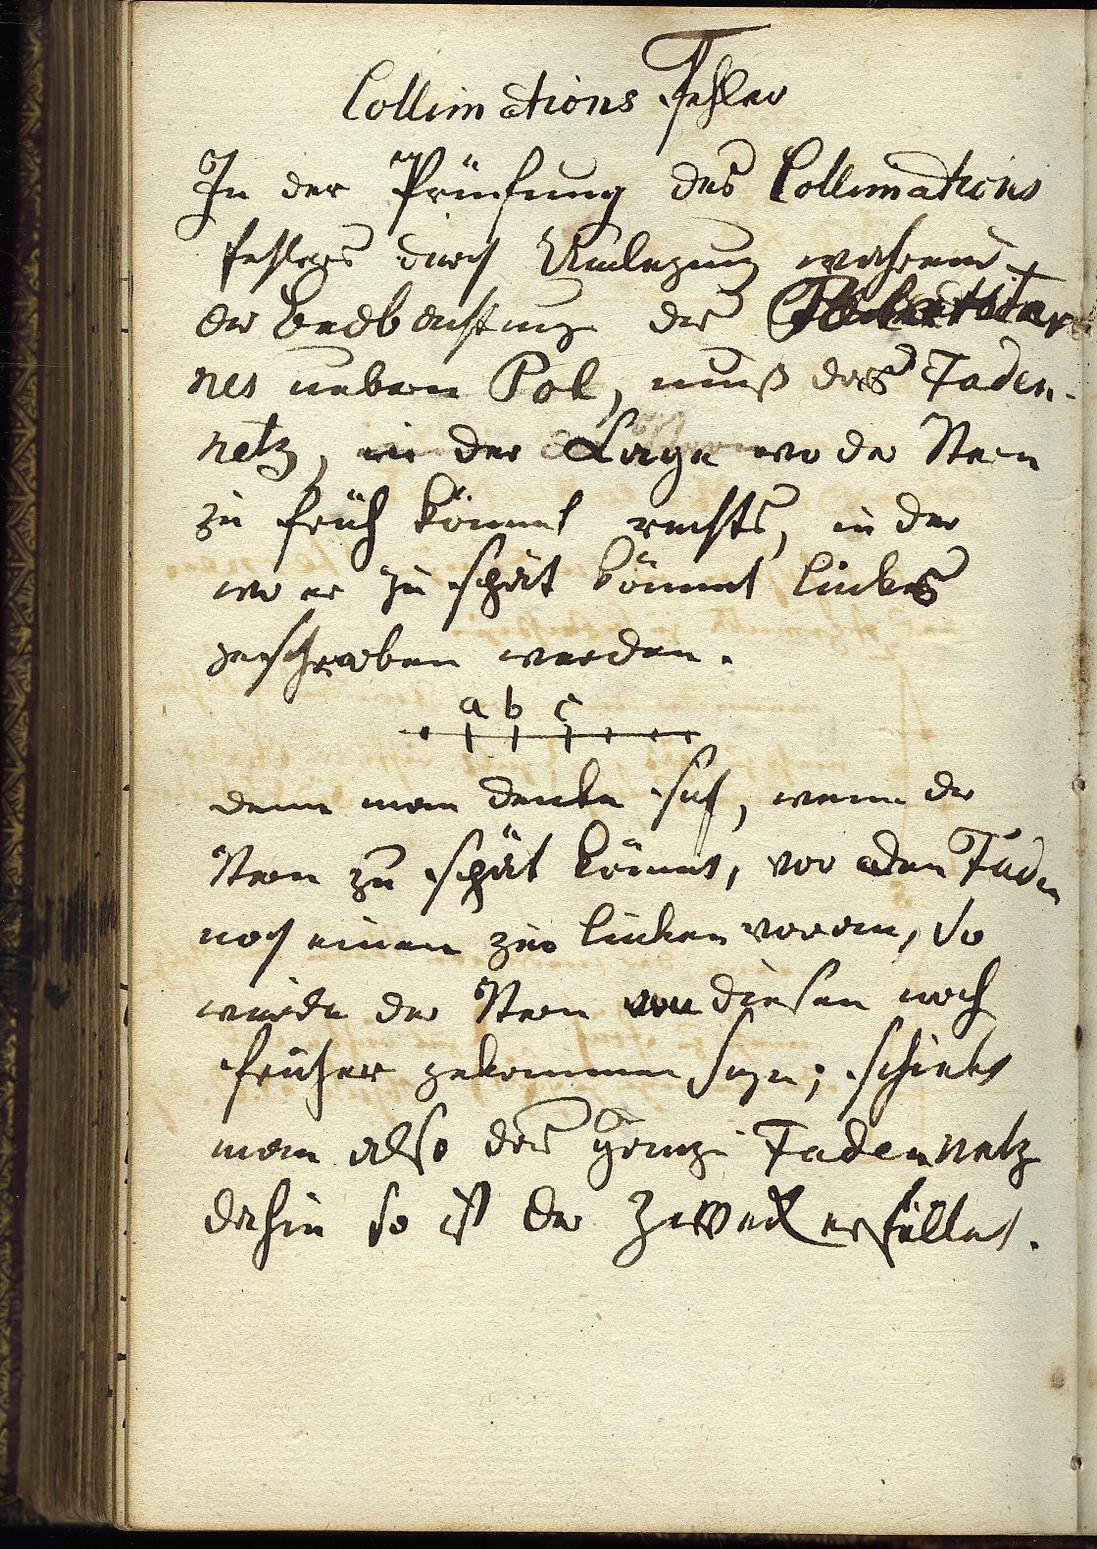 Collimations Fehler
In der Prüfung des Collimations
fehlers durch Umlegung während
der Beobachtung des
nes nebem Pol, muß das Faden-
netz, in der Lage wo der Stern
zu früh kömmt rechts, in der
wo er zu spät kömmt lincks
geschroben werden.
a b c
denn man dencke sich, wenn der
Stern zu spät kömmt, vor den Faden
noch einen zur lincken voran, so
würde der Stern diesen noch
früher gekommen seyn; schiebt
man also das ganze Fadennetz
dahin so ist der Zweck erfüllet.